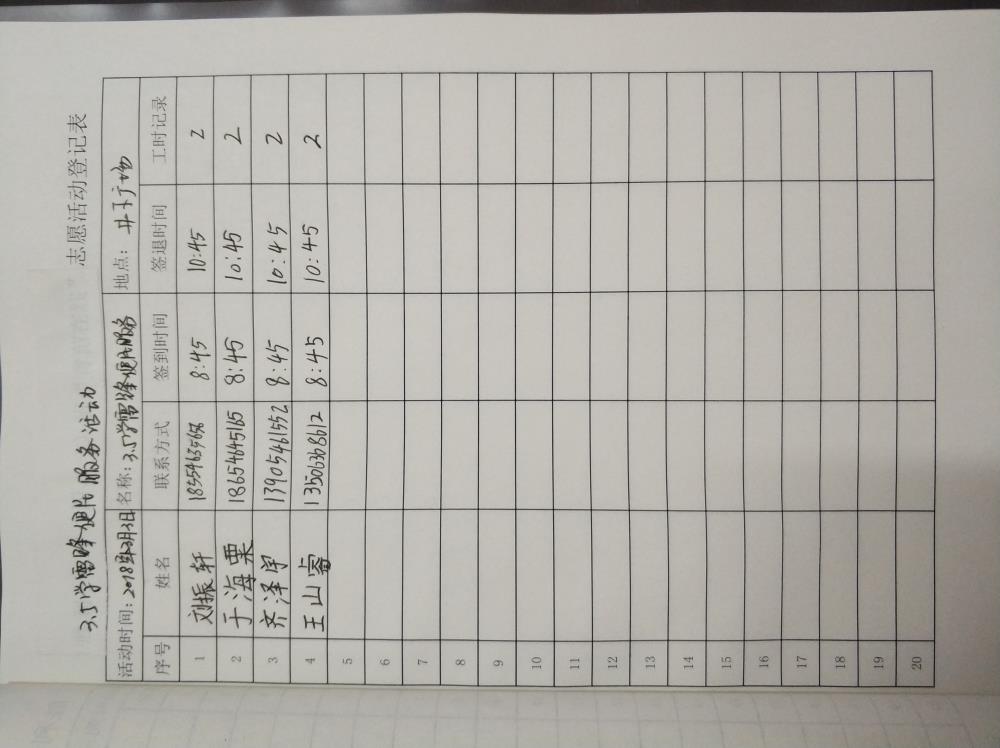 3.5学雷锋便民服务活动 志愿活动登记表
活动时间：2018年3月3日 名称：3.5学雷锋便民服务 地点：井下广场
序号 姓名 联系方式 签到时间 签退时间 工时记录
1 刘振轩 8:45 10:45 2
2 于海栗 18654645165 8:45 10:45 2
3 齐泽宇 13905461552 8:45 10:45 2
4 王山睿 13506368612 8:45 10:45 2
5
6
7
8
9
10
11
12
13
14
15
16
17
18
19
20